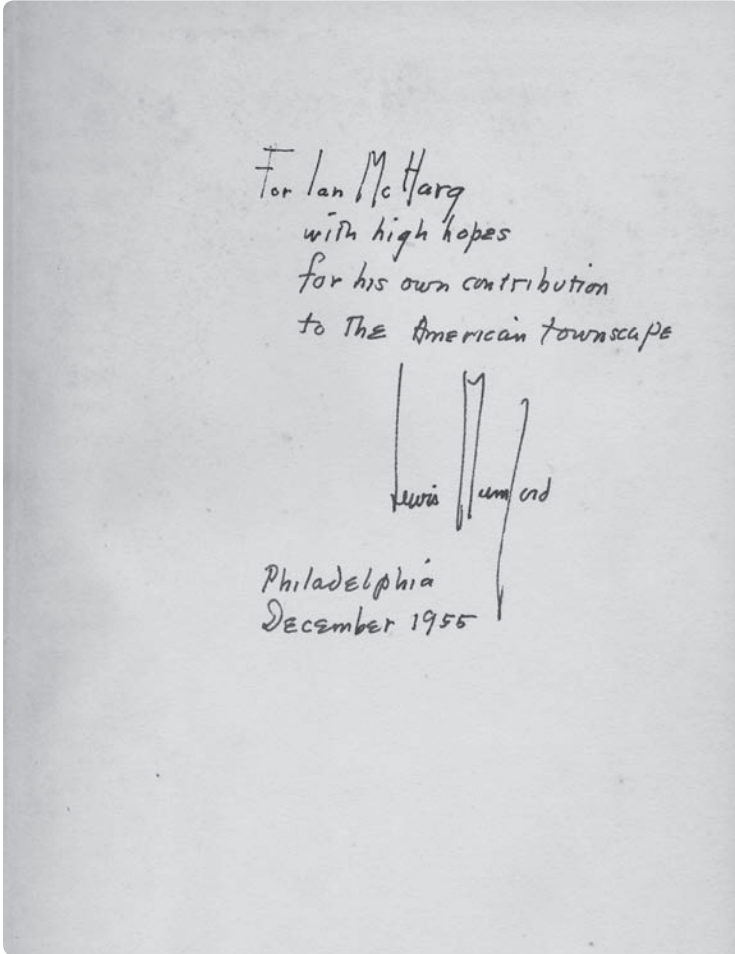 For Ian McHarg
with high hopes
for his own contribution
to The American townscape
Lewis Mumford
Philadelphia
December 1955